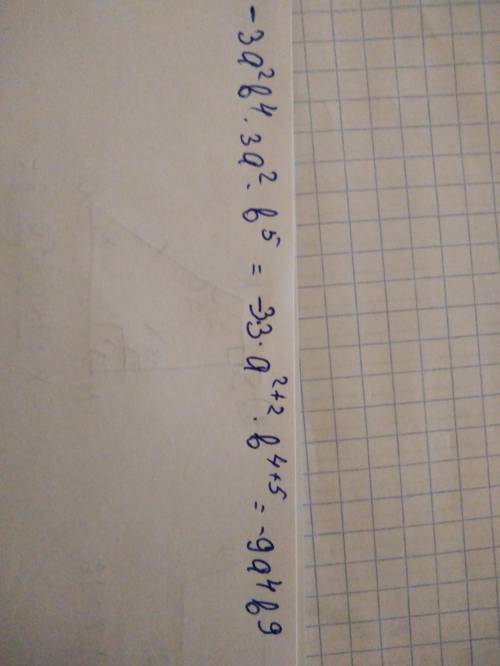 -3a²b⁴ · 3a² · b⁵ = -3·3 · a²⁺² · b⁴⁺⁵ = -9a⁴b⁹